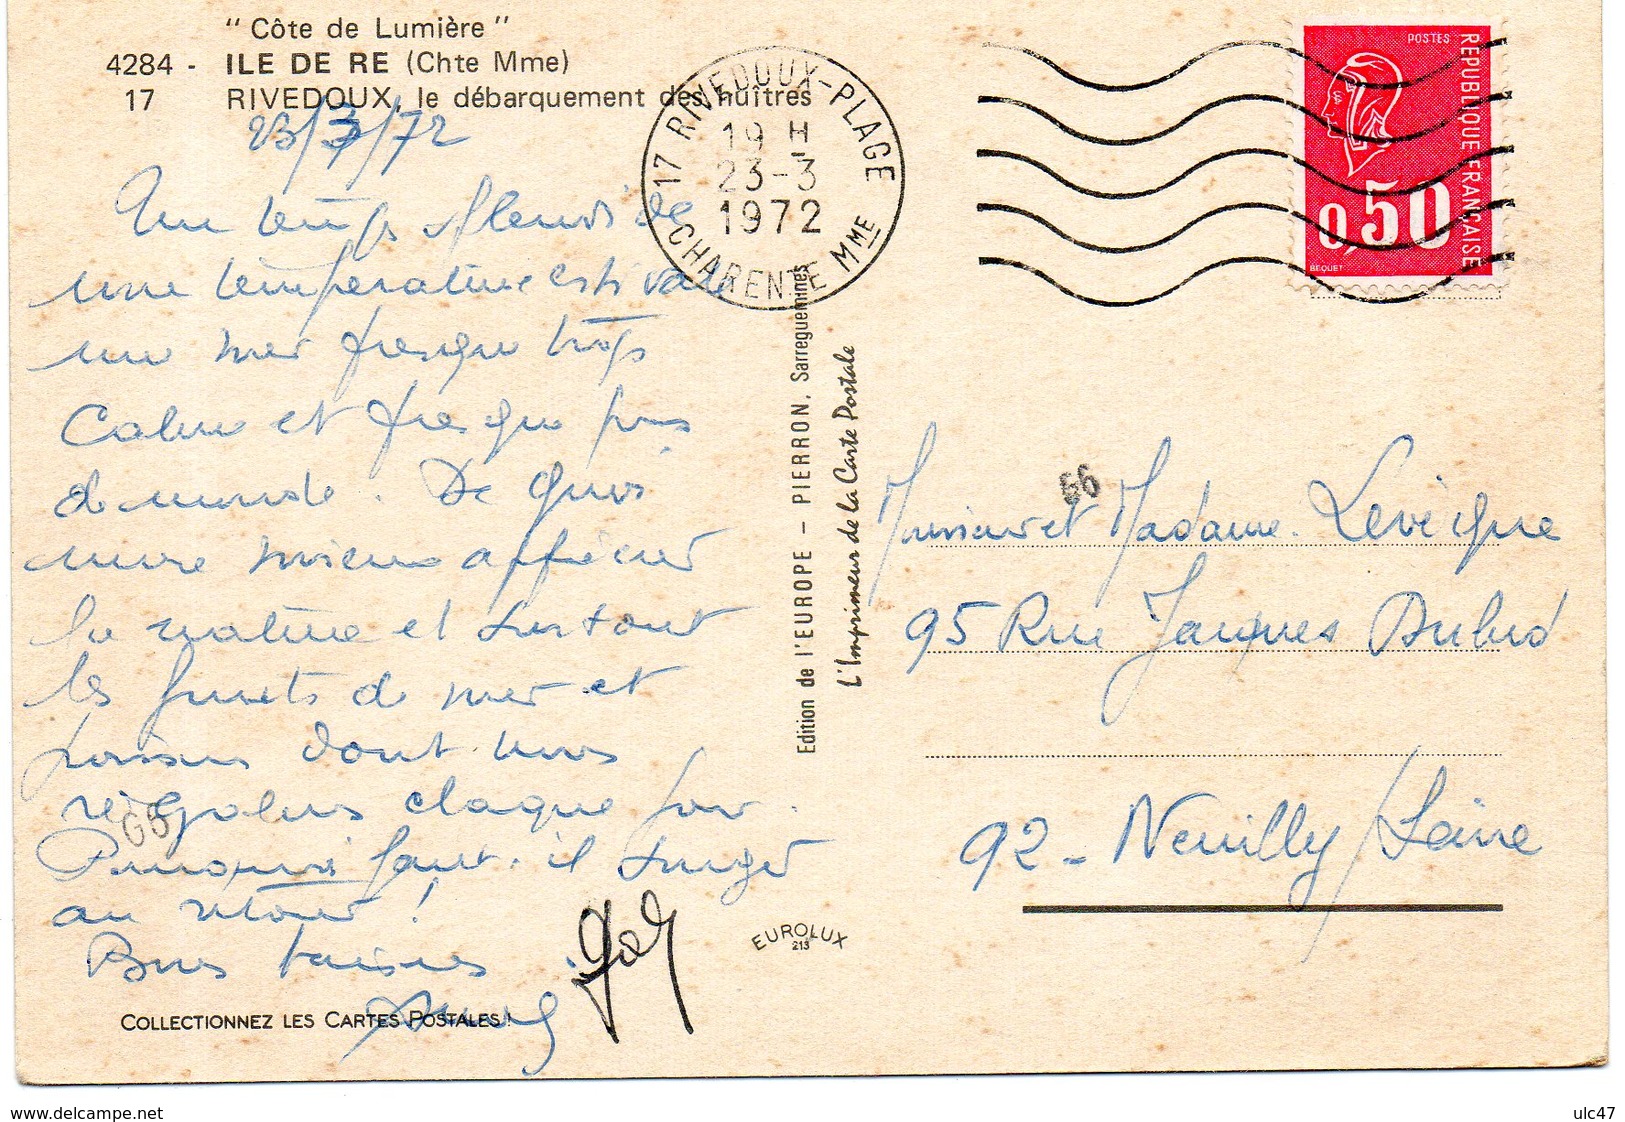 " Côte de Lumière "
4284 - ILE DE RE (Chte Mme)
17 RIVEDOUX, le débarquement des huîtres
23/3/72
Un temps de
une temperature estivale
une mer presque trop
Calme et presque pas
de monde. De quoi
mieux apprécier
la nature et surtout
les fruits de mer et
poissons dont nous
régalons chaque jour.
Pourquoi faut-il songer
au retour !
Bons baisers
COLLECTIONNEZ LES CARTES POSTALES !
17 RIVEDOUX-PLAGE
19 H
23-3
1972
CHARENTE MME
Edition de l'EUROPE - PIERRON, Sarreguemines
L'Imprimeur de la Carte Postale
EUROLUX
213
POSTES
REPUBLIQUE FRANÇAISE
0,50
BEQUET
66
Monsieur et Madame Levêque
95 Rue Jacques Dulud
92 - Neuilly/Seine
delcampe.net
ulc47